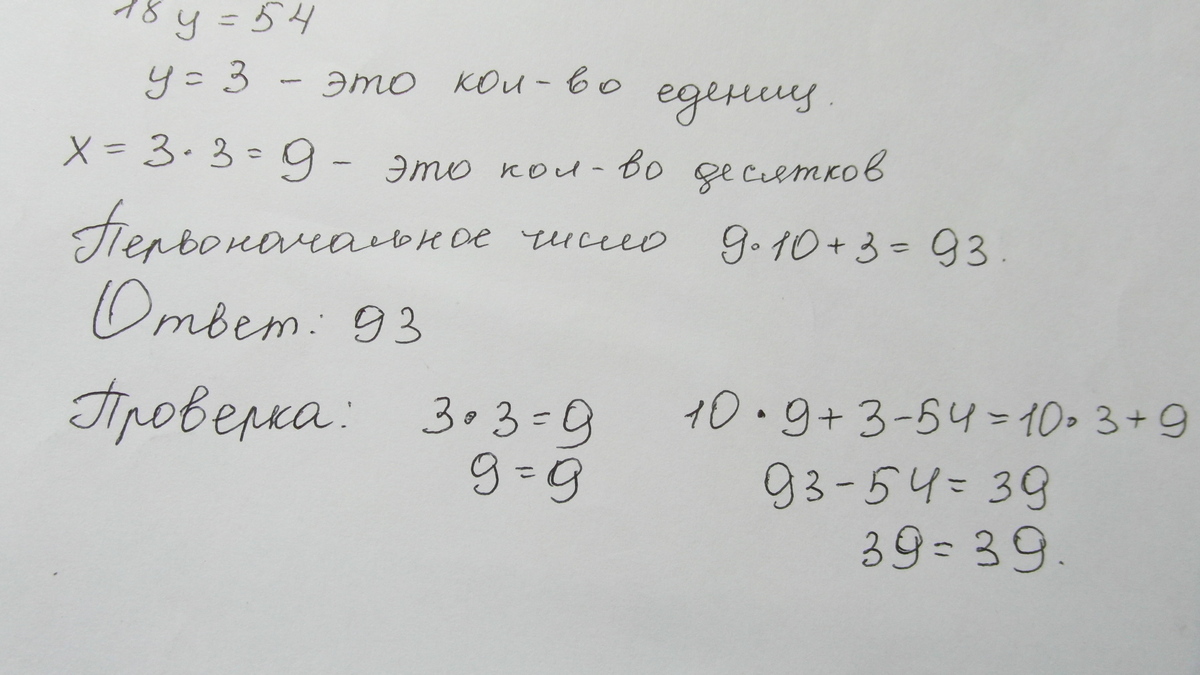 18 y = 54
y = 3 – это кол-во едениц.
x = 3·3 = 9 – это кол-во десятков
Первоначальное число 9·10+3 = 93.
Ответ: 93
Проверка: 3·3=9 10·9+3-54=10·3+9
9=9 93-54=39
39=39.